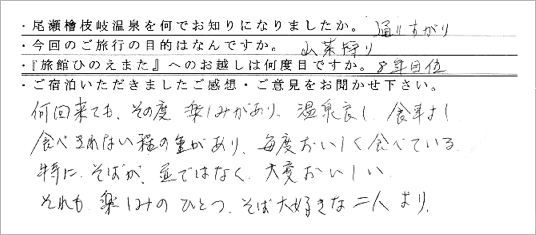 ・尾瀬檜枝岐温泉を何でお知りになりましたか。 通りすがり
・今回のご旅行の目的はなんですか。 山菜狩り
・『旅館ひのえまた』へのお越しは何度目ですか。 8年目位
・ご宿泊いただきましたご感想・ご意見をお聞かせ下さい。
何回来ても、その度 楽しみがあり、温泉良し、食事よし
食べきれない程の量があり、毎度おいしく食べている
特に、そばが、並ではなく、大変おいしい。
それも、楽しみのひとつ、そば大好きな二人より。